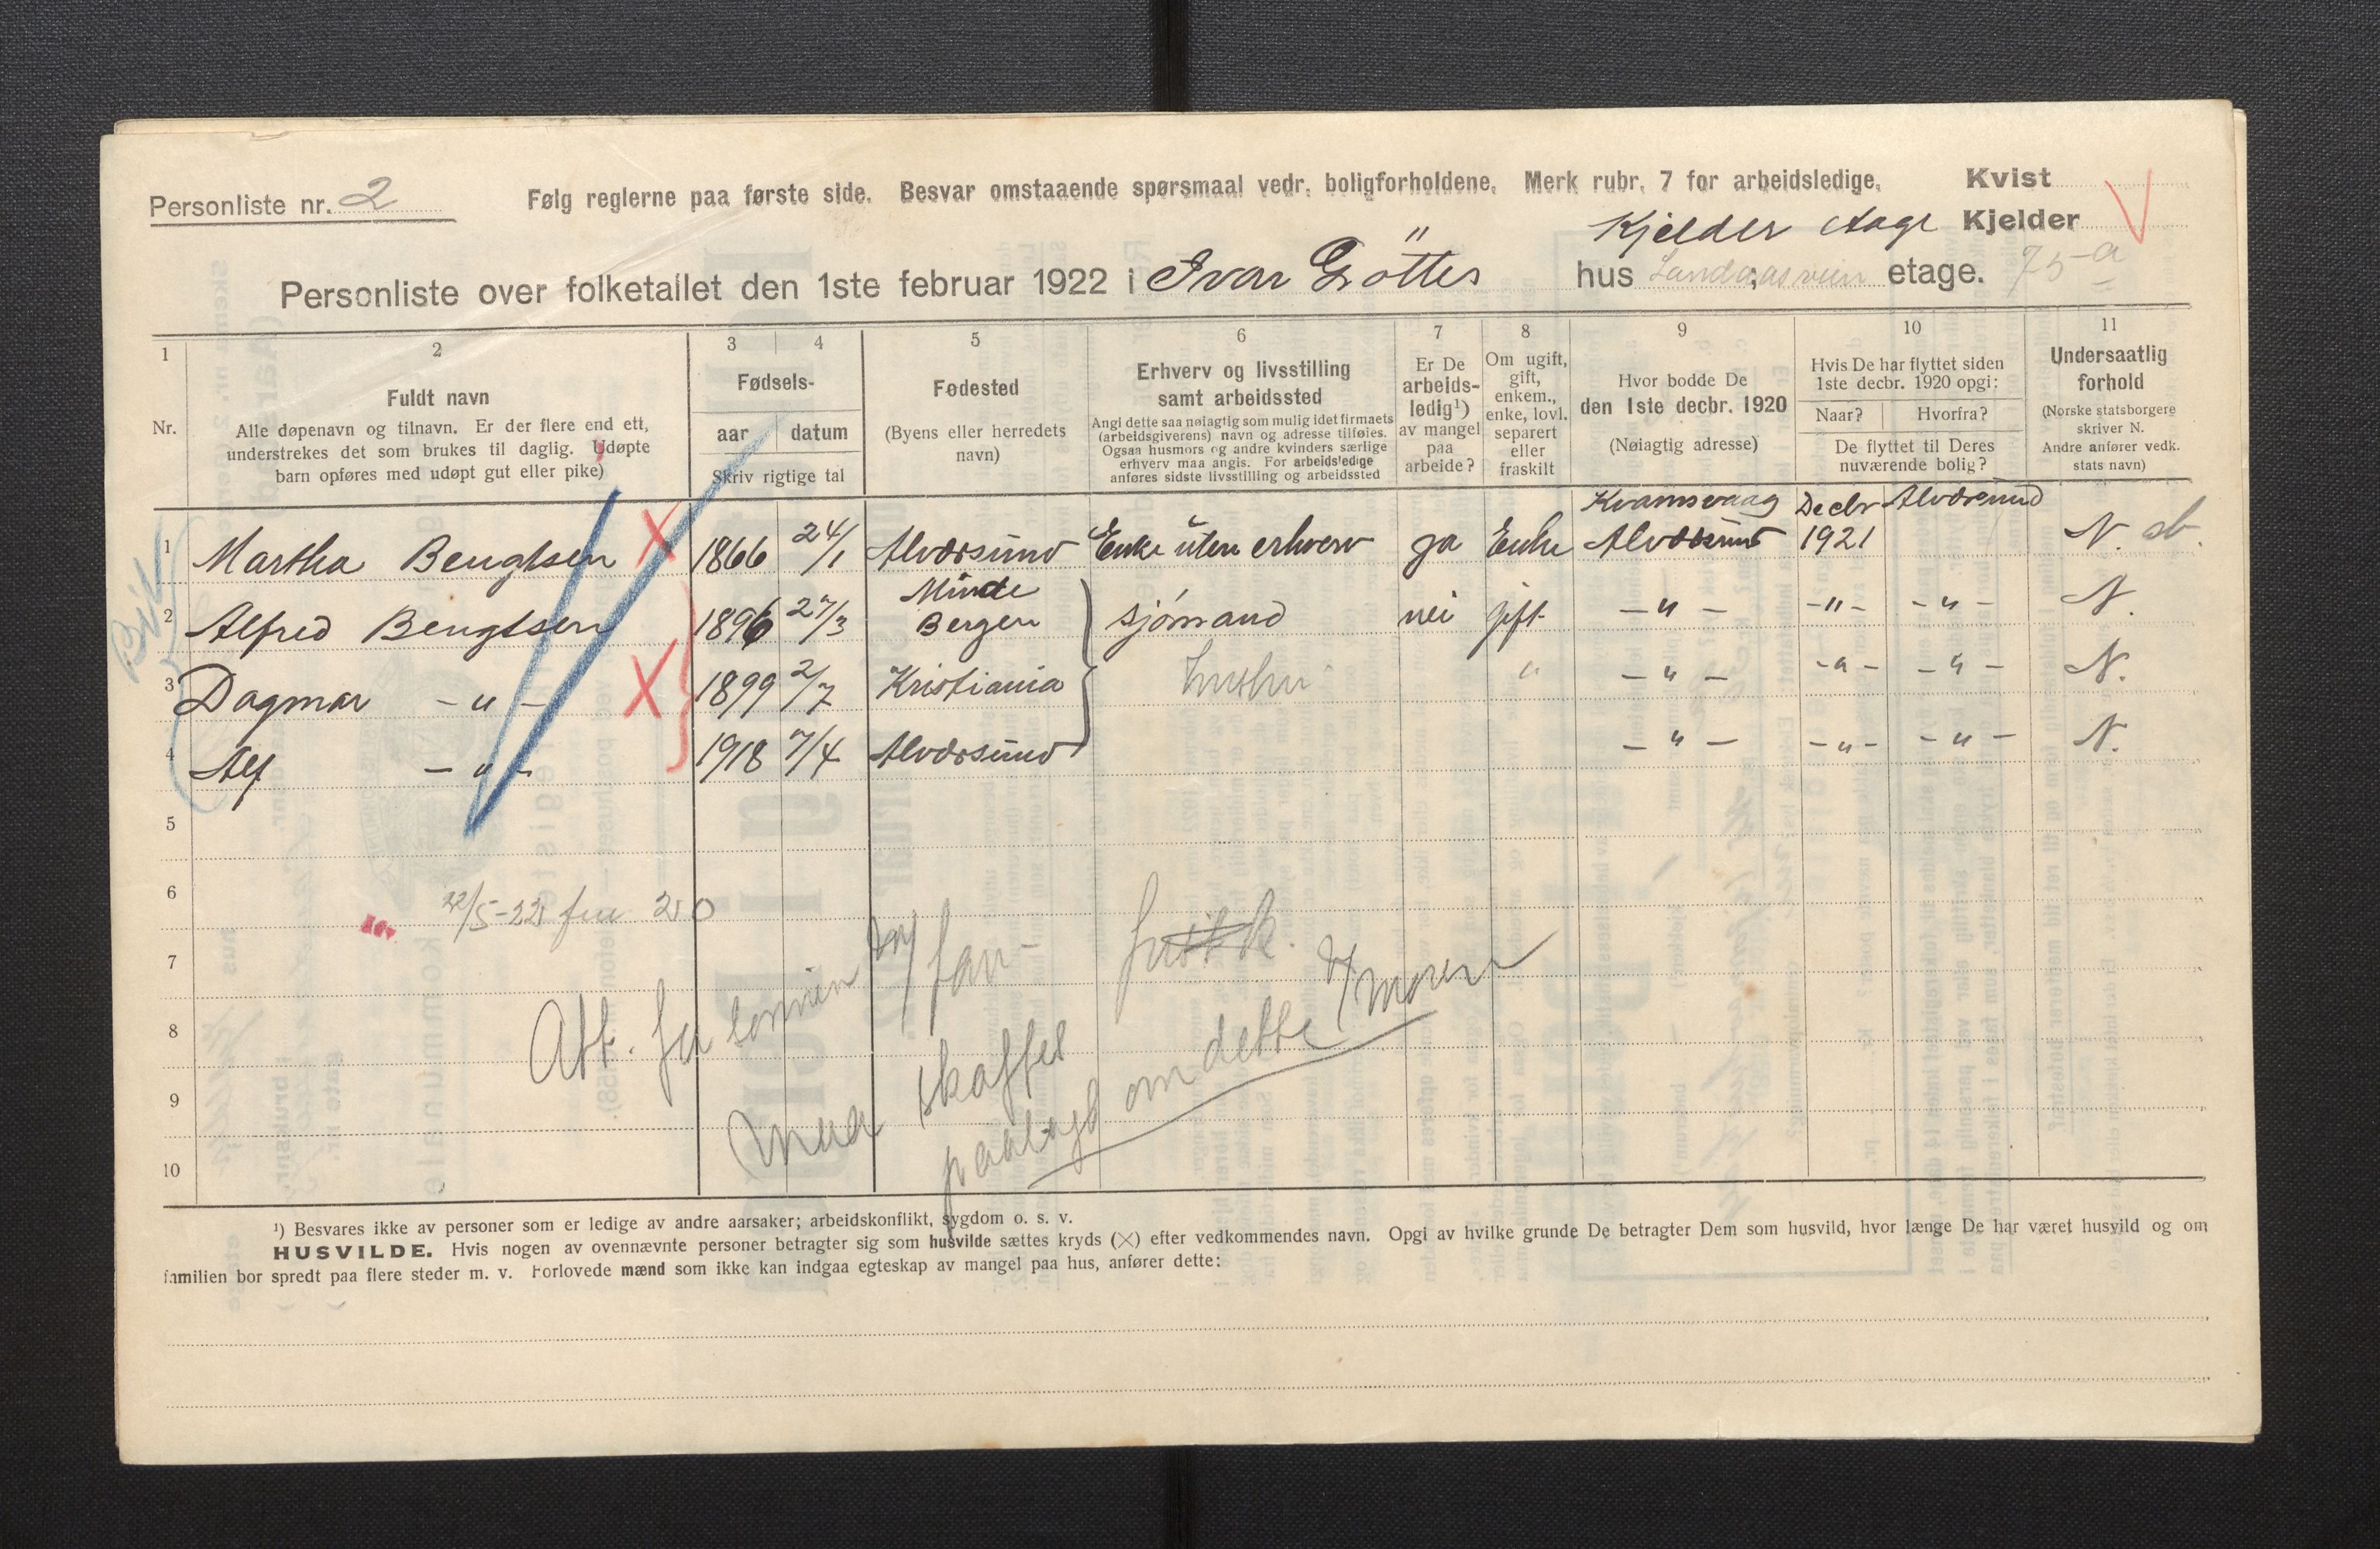 Personliste nr. 2
Følg reglerne paa første side. Besvar omstaaende spørsmaal vedr. boligforholdene. Merk rubr. 7 for arbeidsledige.
Kvist
Kjelder Aage Kjelder
Personliste over folketallet den 1ste februar 1922 i Ivar Göttes hus Landaasveien etage. 75 a
1 2 3 4 5 6 7 8 9 10 11
Nr.
Fuldt navn
Alle døpenavn og tilnavn. Er der flere end ett,
understrekes det som brukes til daglig. Udøpte
barn opføres med udøpt gut eller pike)
Fødsels-
aar datum
Skriv rigtige tal
Fødested
(Byens eller herredets
navn)
Erhverv og livsstilling
samt arbeidssted
Angi dette saa nøiagtig som mulig idet firmaets
(arbeidsgiverens) navn og adresse tilføies.
Ogsaa husmors og andre kvinders særlige
erhverv maa angis. For arbeidsledige
anføres sidste livsstilling og arbeidssted
Er De
arbeids-
ledig¹)
av mangel
paa
arbeide?
Om ugift,
gift,
enkem.,
enke, lovl.
separert
eller
fraskilt
Hvor bodde De
den 1ste decbr. 1920
(Nøiagtig adresse)
Hvis De har flyttet siden
1ste decbr. 1920 opgi:
Naar? Hvorfra?
De flyttet til Deres
nuværende bolig?
Undersaatlig
forhold
(Norske statsborgere
skriver N.
Andre anfører vedk.
stats navn)
Kvamsvaag Decbr Alversund
1 Martha Bengtsen X 1866 24/1 Alversund Enke uten erhverv ja Enke Alversund 1921 N.
Minde
2 Alfred Bengtsen 1896 27/3 Bergen sjømand nei gift - " - - " - - " - N.
3 Dagmar - " - X 1899 2/7 Kristiania hustru " - " - - " - - " - N.
4 Alf - " - 1918 7/4 Alversund - " - - " - - " - N.
5
6
22/5-22
7
8
9
10
Att. fra
skaffes
om dette
¹) Besvares ikke av personer som er ledige av andre aarsaker; arbeidskonflikt, sygdom o. s. v.
HUSVILDE. Hvis nogen av ovennævnte personer betragter sig som husvilde sættes kryds (×) efter vedkommendes navn. Opgi av hvilke grunde De betragter Dem som husvild, hvor længe De har været husvild og om
familien bor spredt paa flere steder m. v. Forlovede mænd som ikke kan indgaa egteskap av mangel paa hus, anfører dette: